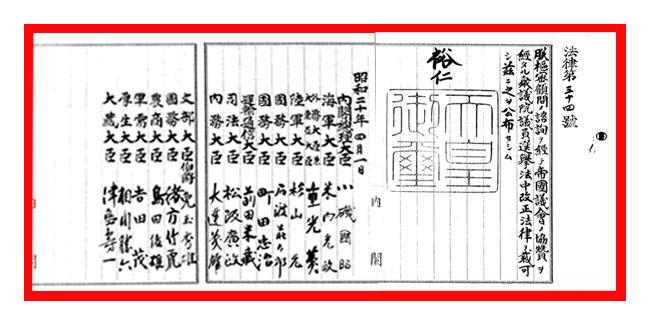 法律第三十四號
朕樞密顧問ノ諮詢ヲ經テ帝國議會ノ協贊ヲ
經タル衆議院議員選擧法中改正法律ヲ裁可
シ茲ニ之ヲ公布セシム
裕仁
天皇
御璽
昭和二十年四月一日
內閣總理大臣 小磯國昭
海軍大臣 米內光政
外務大臣 重光葵
陸軍大臣 杉山元
國務大臣
國務大臣 町田忠治
運輸通信大臣 前田米藏
司法大臣 松阪廣政
內務大臣 大達茂雄
文部大臣伯爵 兒玉秀雄
國務大臣 緒方竹虎
農商大臣 島田俊雄
軍需大臣 吉田茂
厚生大臣 相川勝六
大藏大臣 津島壽一
內閣